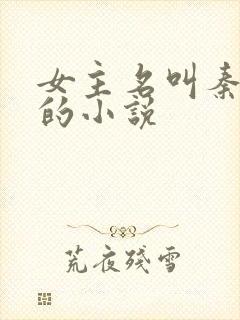 女主名叫秦
的小說
荒夜殘雪